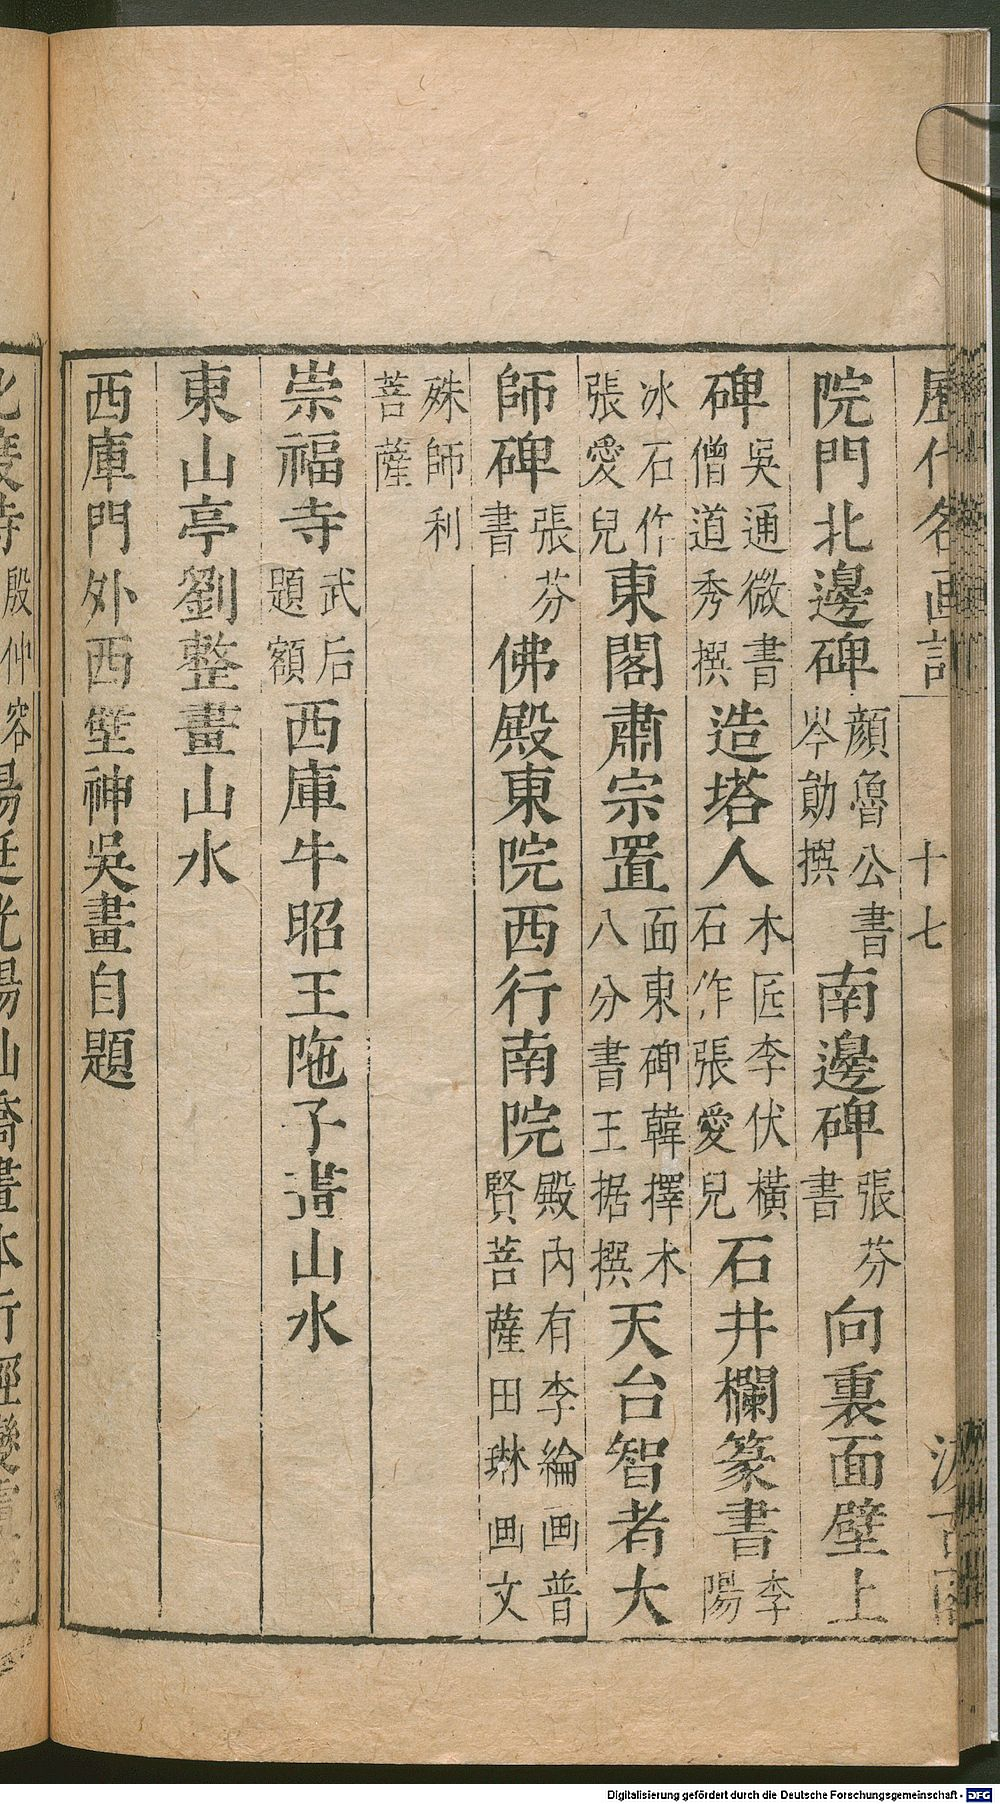 歷代名画記 十七 汲古閣
院門北邊碑顏魯公書岑勛撰南邊碑張芬書向裏面壁上
碑吳通微書僧道秀撰造塔人木匠李伏橫石作張愛兒石井欄篆書李陽
冰石作張愛兒東閣肅宗置面東碑韓擇木八分書王据撰天台智者大
師碑張芬書佛殿東院西行南院殿內有李綸画普賢菩薩田琳画文
殊師利菩薩
崇福寺武后題額西庫牛昭王陁子畫山水
東山亭劉整畫山水
西庫門外西壁神吳畫自題
化度寺殷仲容楊廷光楊仙喬畫本行經變
Digitalisierung gefördert durch die Deutsche Forschungsgemeinschaft - DFG